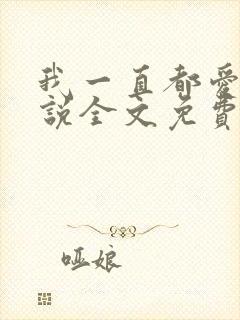 我一直都愛
說全文免費
哑娘